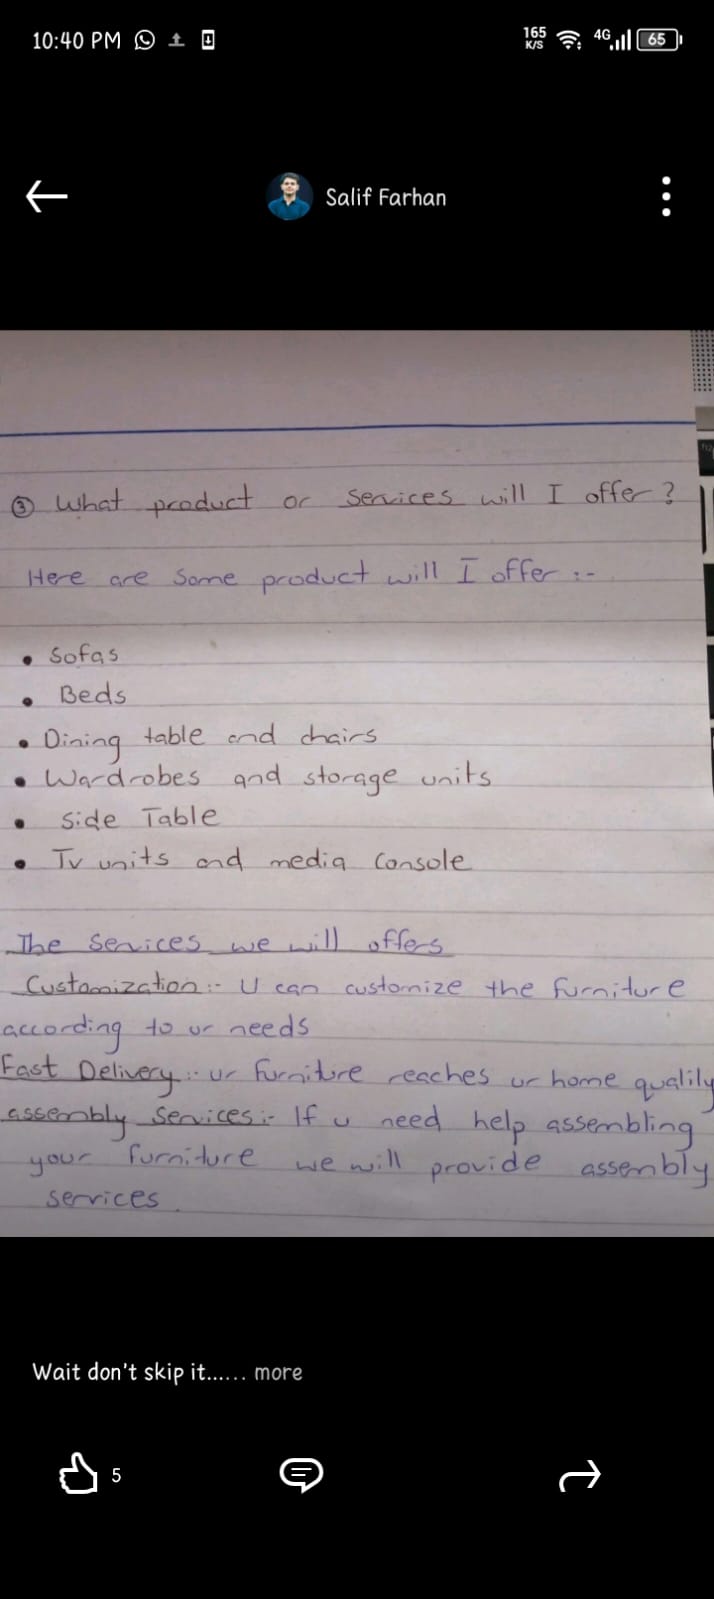 10:40 PM
165 K/S 4G 65
Salif Farhan
③ What product or services will I offer?
Here are some product will I offer :-
• Sofas
• Beds
• Dining table and chairs
• Wardrobes and storage units
• Side Table
• Tv units and media console
The services we will offers
Customization :- U can customize the furniture
according to ur needs
Fast Delivery :- ur furniture reaches ur home qualily
assembly services :- If u need help assembling
your furniture we will provide assembly
services.
Wait don't skip it...... more
5